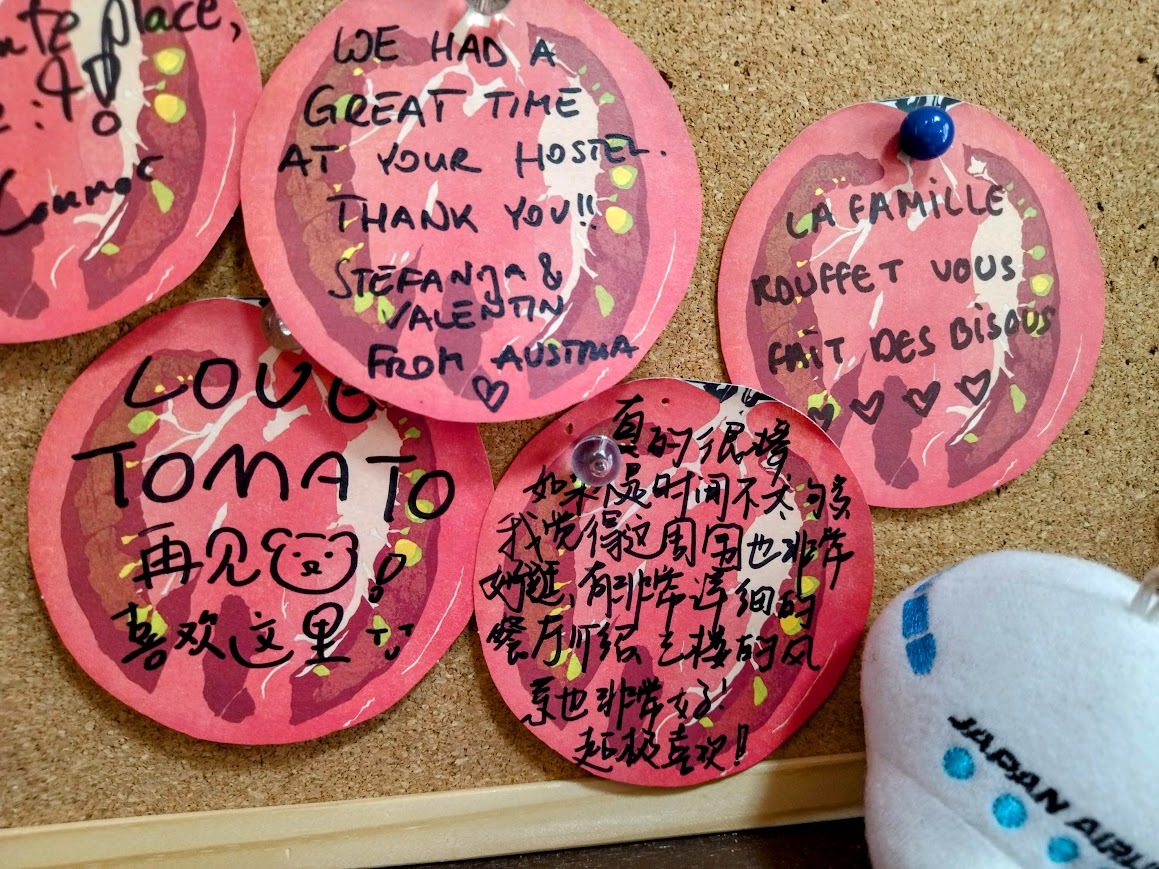 place,
WE HAD A
GREAT TIME
AT YOUR HOSTEL.
THANK YOU!!
STEFANJA &
VALENTIN
FROM AUSTRIA
LA FAMILLE
ROUFFET VOUS
FAIT DES BISOUS
LOVE
TOMATO
再见!
喜欢这里
真的很棒
如果是时间不太够
我觉得这周围也非常
好逛、有非常详细的
餐厅介绍 楼的风
景也非常好!
超极喜欢!
JAPAN AIRL